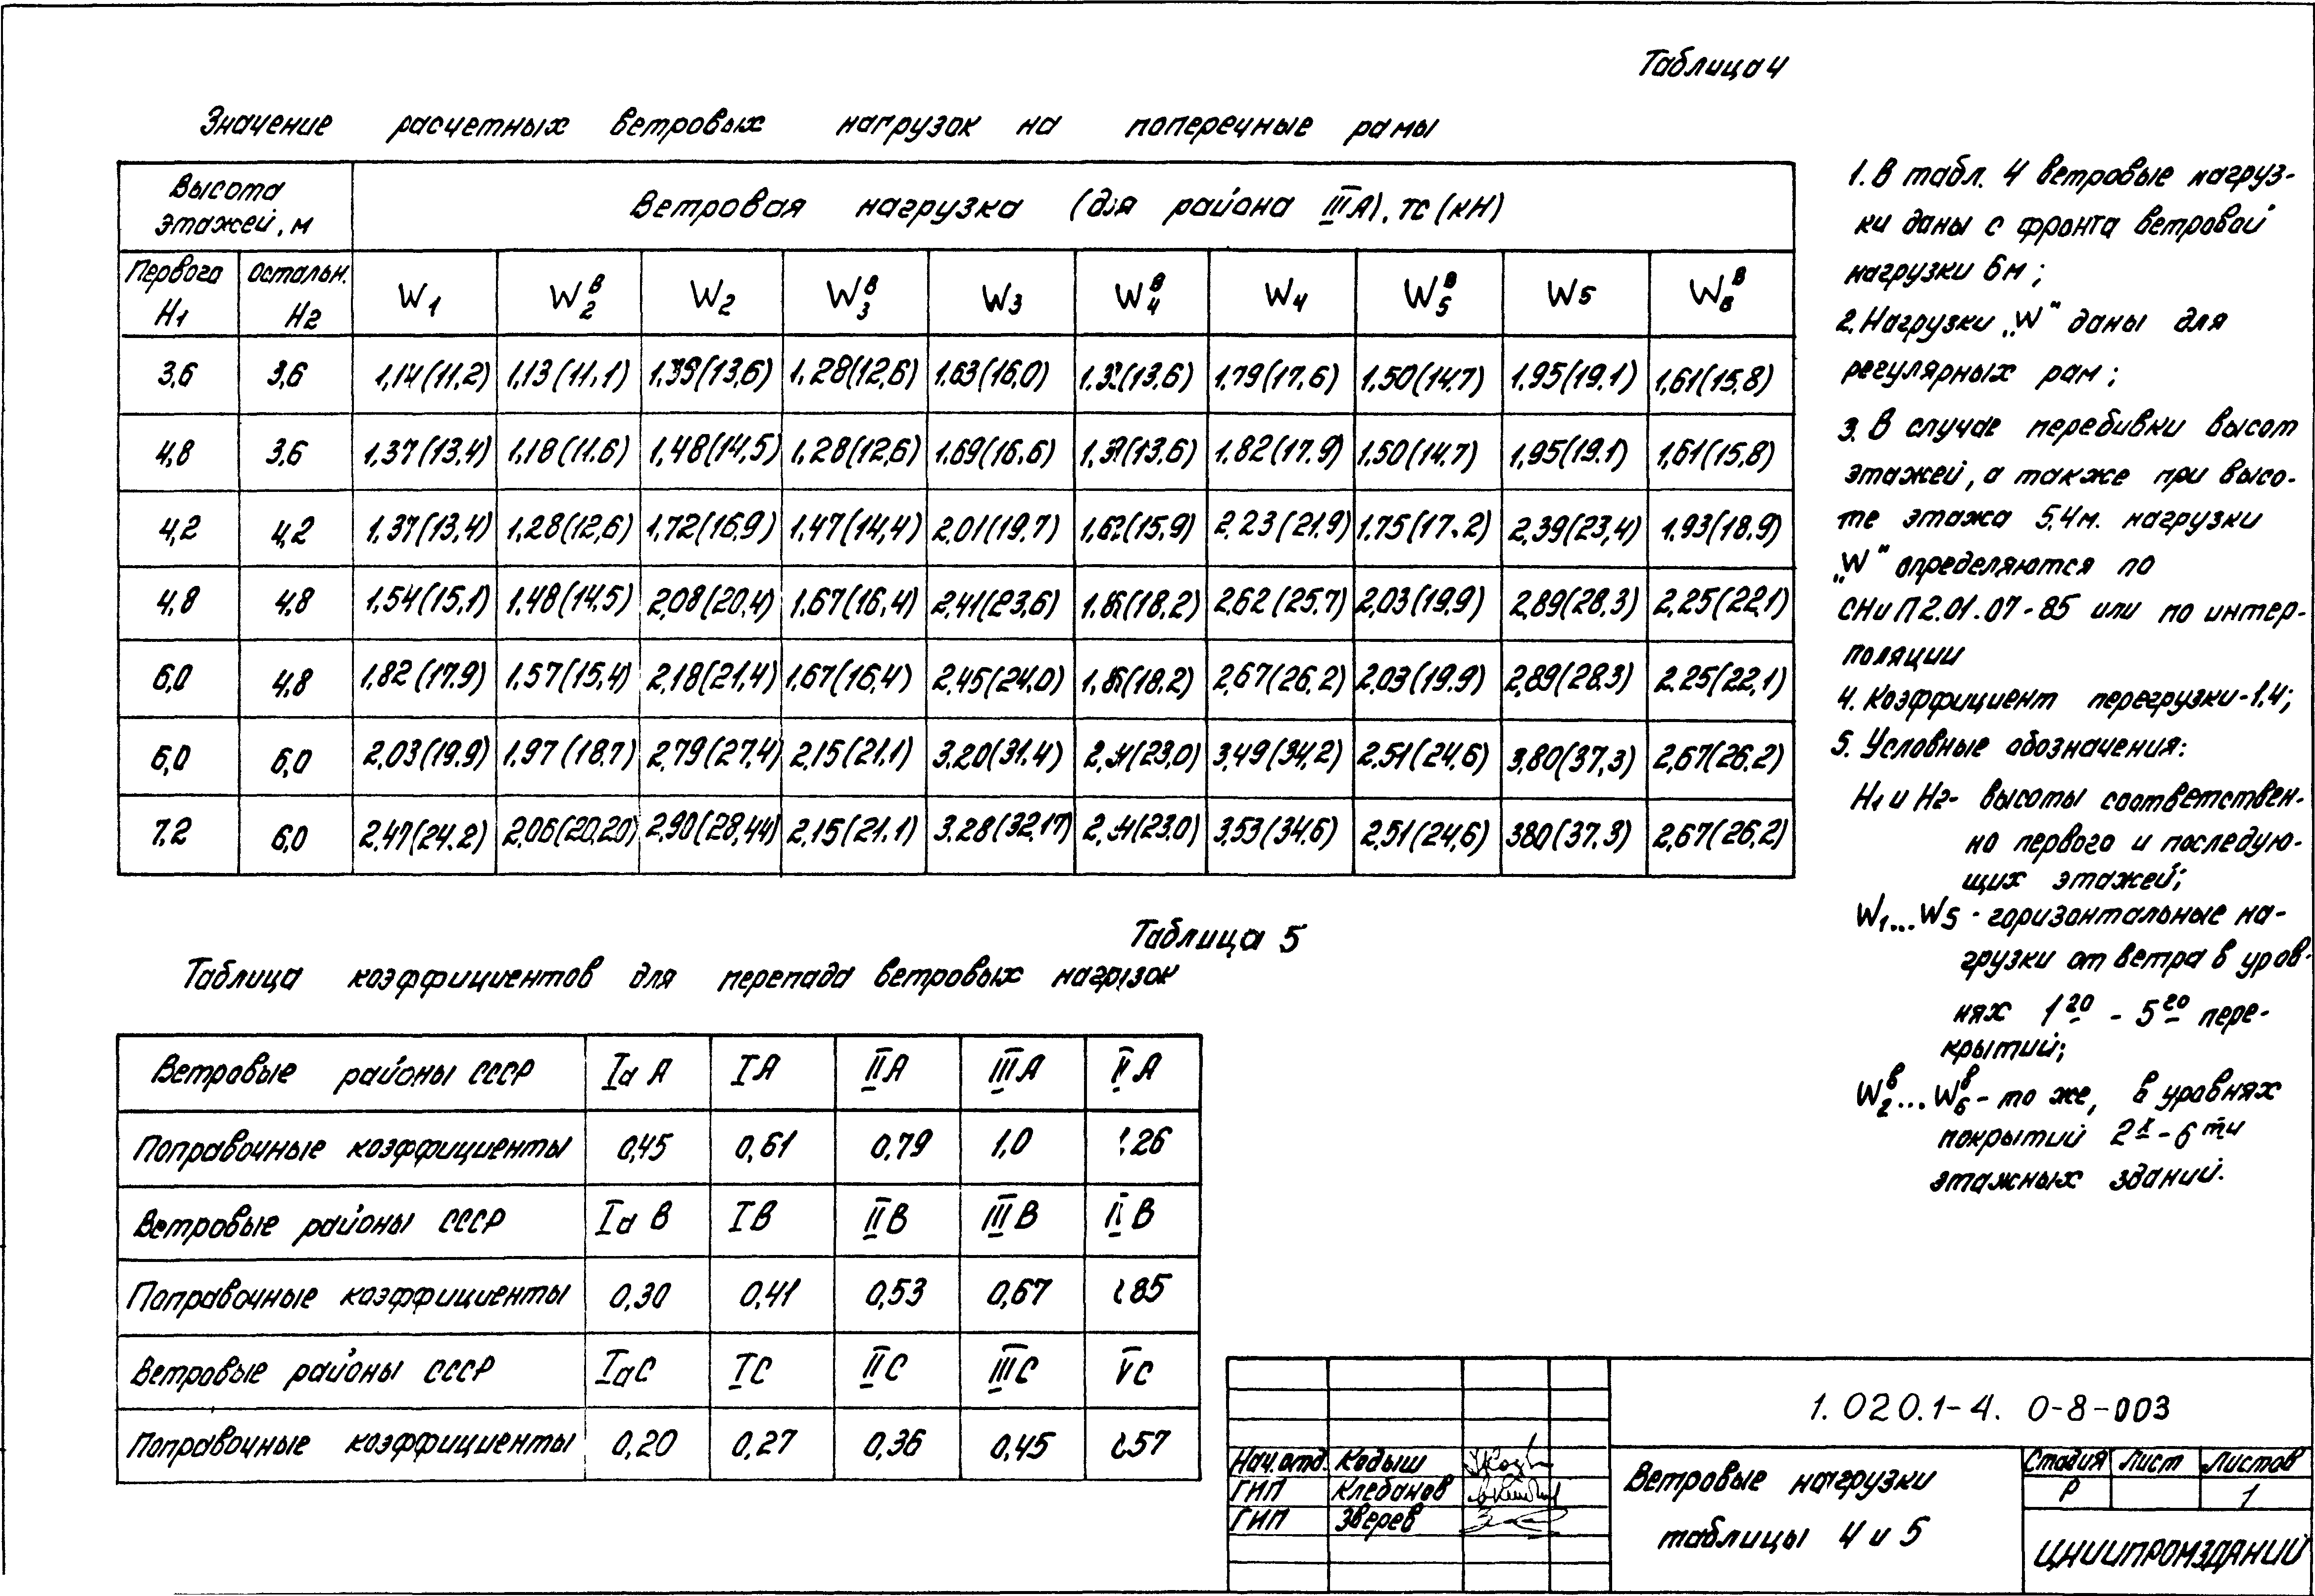 Таблица 4
Значение расчетных ветровых нагрузок на поперечные рамы
Высота этажей, м
Ветровая нагрузка (для района IIIА), тс (кН)
Первого H1 Остальн. H2 W1 W2в W2 W3в W3 W4в W4 W5в W5 W6в
3,6 3,6 1,14(11,2) 1,13(11,1) 1,39(13,6) 1,28(12,6) 1,63(16,0) (13,6) 1,79(17,6) 1,50(14,7) 1,95(19,1) 1,61(15,8)
4,8 3,6 1,37(13,4) 1,18(11,6) 1,48(14,5) 1,28(12,6) 1,69(16,6) (13,6) 1,82(17,9) 1,50(14,7) 1,95(19,1) 1,61(15,8)
4,2 4,2 1,37(13,4) 1,28(12,6) 1,72(16,9) 1,47(14,4) 2,01(19,7) 1,62(15,9) 2,23(21,9) 1,75(17,2) 2,39(23,4) 1,93(18,9)
4,8 4,8 1,54(15,1) 1,48(14,5) 2,08(20,4) 1,67(16,4) 2,41(23,6) (18,2) 2,62(25,7) 2,03(19,9) 2,89(28,3) 2,25(22,1)
6,0 4,8 1,82(17,9) 1,57(15,4) 2,18(21,4) 1,67(16,4) 2,45(24,0) (18,2) 2,67(26,2) 2,03(19,9) 2,89(28,3) 2,25(22,1)
6,0 6,0 2,03(19,9) 1,97(18,7) 2,79(27,4) 2,15(21,1) 3,20(31,4) (23,0) 3,49(34,2) 2,51(24,6) 3,80(37,3) 2,67(26,2)
7,2 6,0 2,47(24,2) 2,06(20,20) 2,90(28,44) 2,15(21,1) 3,28(32,17) (23,0) 3,53(34,6) 2,51(24,6) 380(37,3) 2,67(26,2)
1. В табл. 4 ветровые нагруз-
ки даны с фронта ветровой
нагрузки 6м;
2. Нагрузки „W" даны для
регулярных рам;
3. В случае перебивки высот
этажей, а также при высо-
те этажа 5,4м. нагрузки
„W" определяются по
СНиП 2.01.07-85 или по интер-
поляции
4. Коэффициент перегрузки-1.4;
5. Условные обозначения:
H1 и H2- высоты соответствен-
но первого и последую-
щих этажей;
W1...W5 - горизонтальные на-
грузки от ветра в уров-
нях 1го - 5го пере-
крытий;
W2в...W6в - то же, в уровнях
покрытий 2х-6ти
этажных зданий.
Таблица 5
Таблица коэффициентов для перепада ветровых нагрузок
Ветровые районы СССР Iа А IА IIА IIIА А
Поправочные коэффициенты 0,45 0,61 0,79 1,0 26
Ветровые районы СССР Iа В IВ IIВ IIIВ В
Поправочные коэффициенты 0,30 0,41 0,53 0,67 85
Ветровые районы СССР IаС IС IIС IIIС С
Поправочные коэффициенты 0,20 0,27 0,36 0,45 57
1.020.1-4. 0-8-003
Нач.отд. Кодыш
ГИП Клебанов
ГИП Зверев
Ветровые нагрузки
таблицы 4 и 5
Стадия Лист Листов
Р 1
ЦНИИПРОМЗДАНИЙ